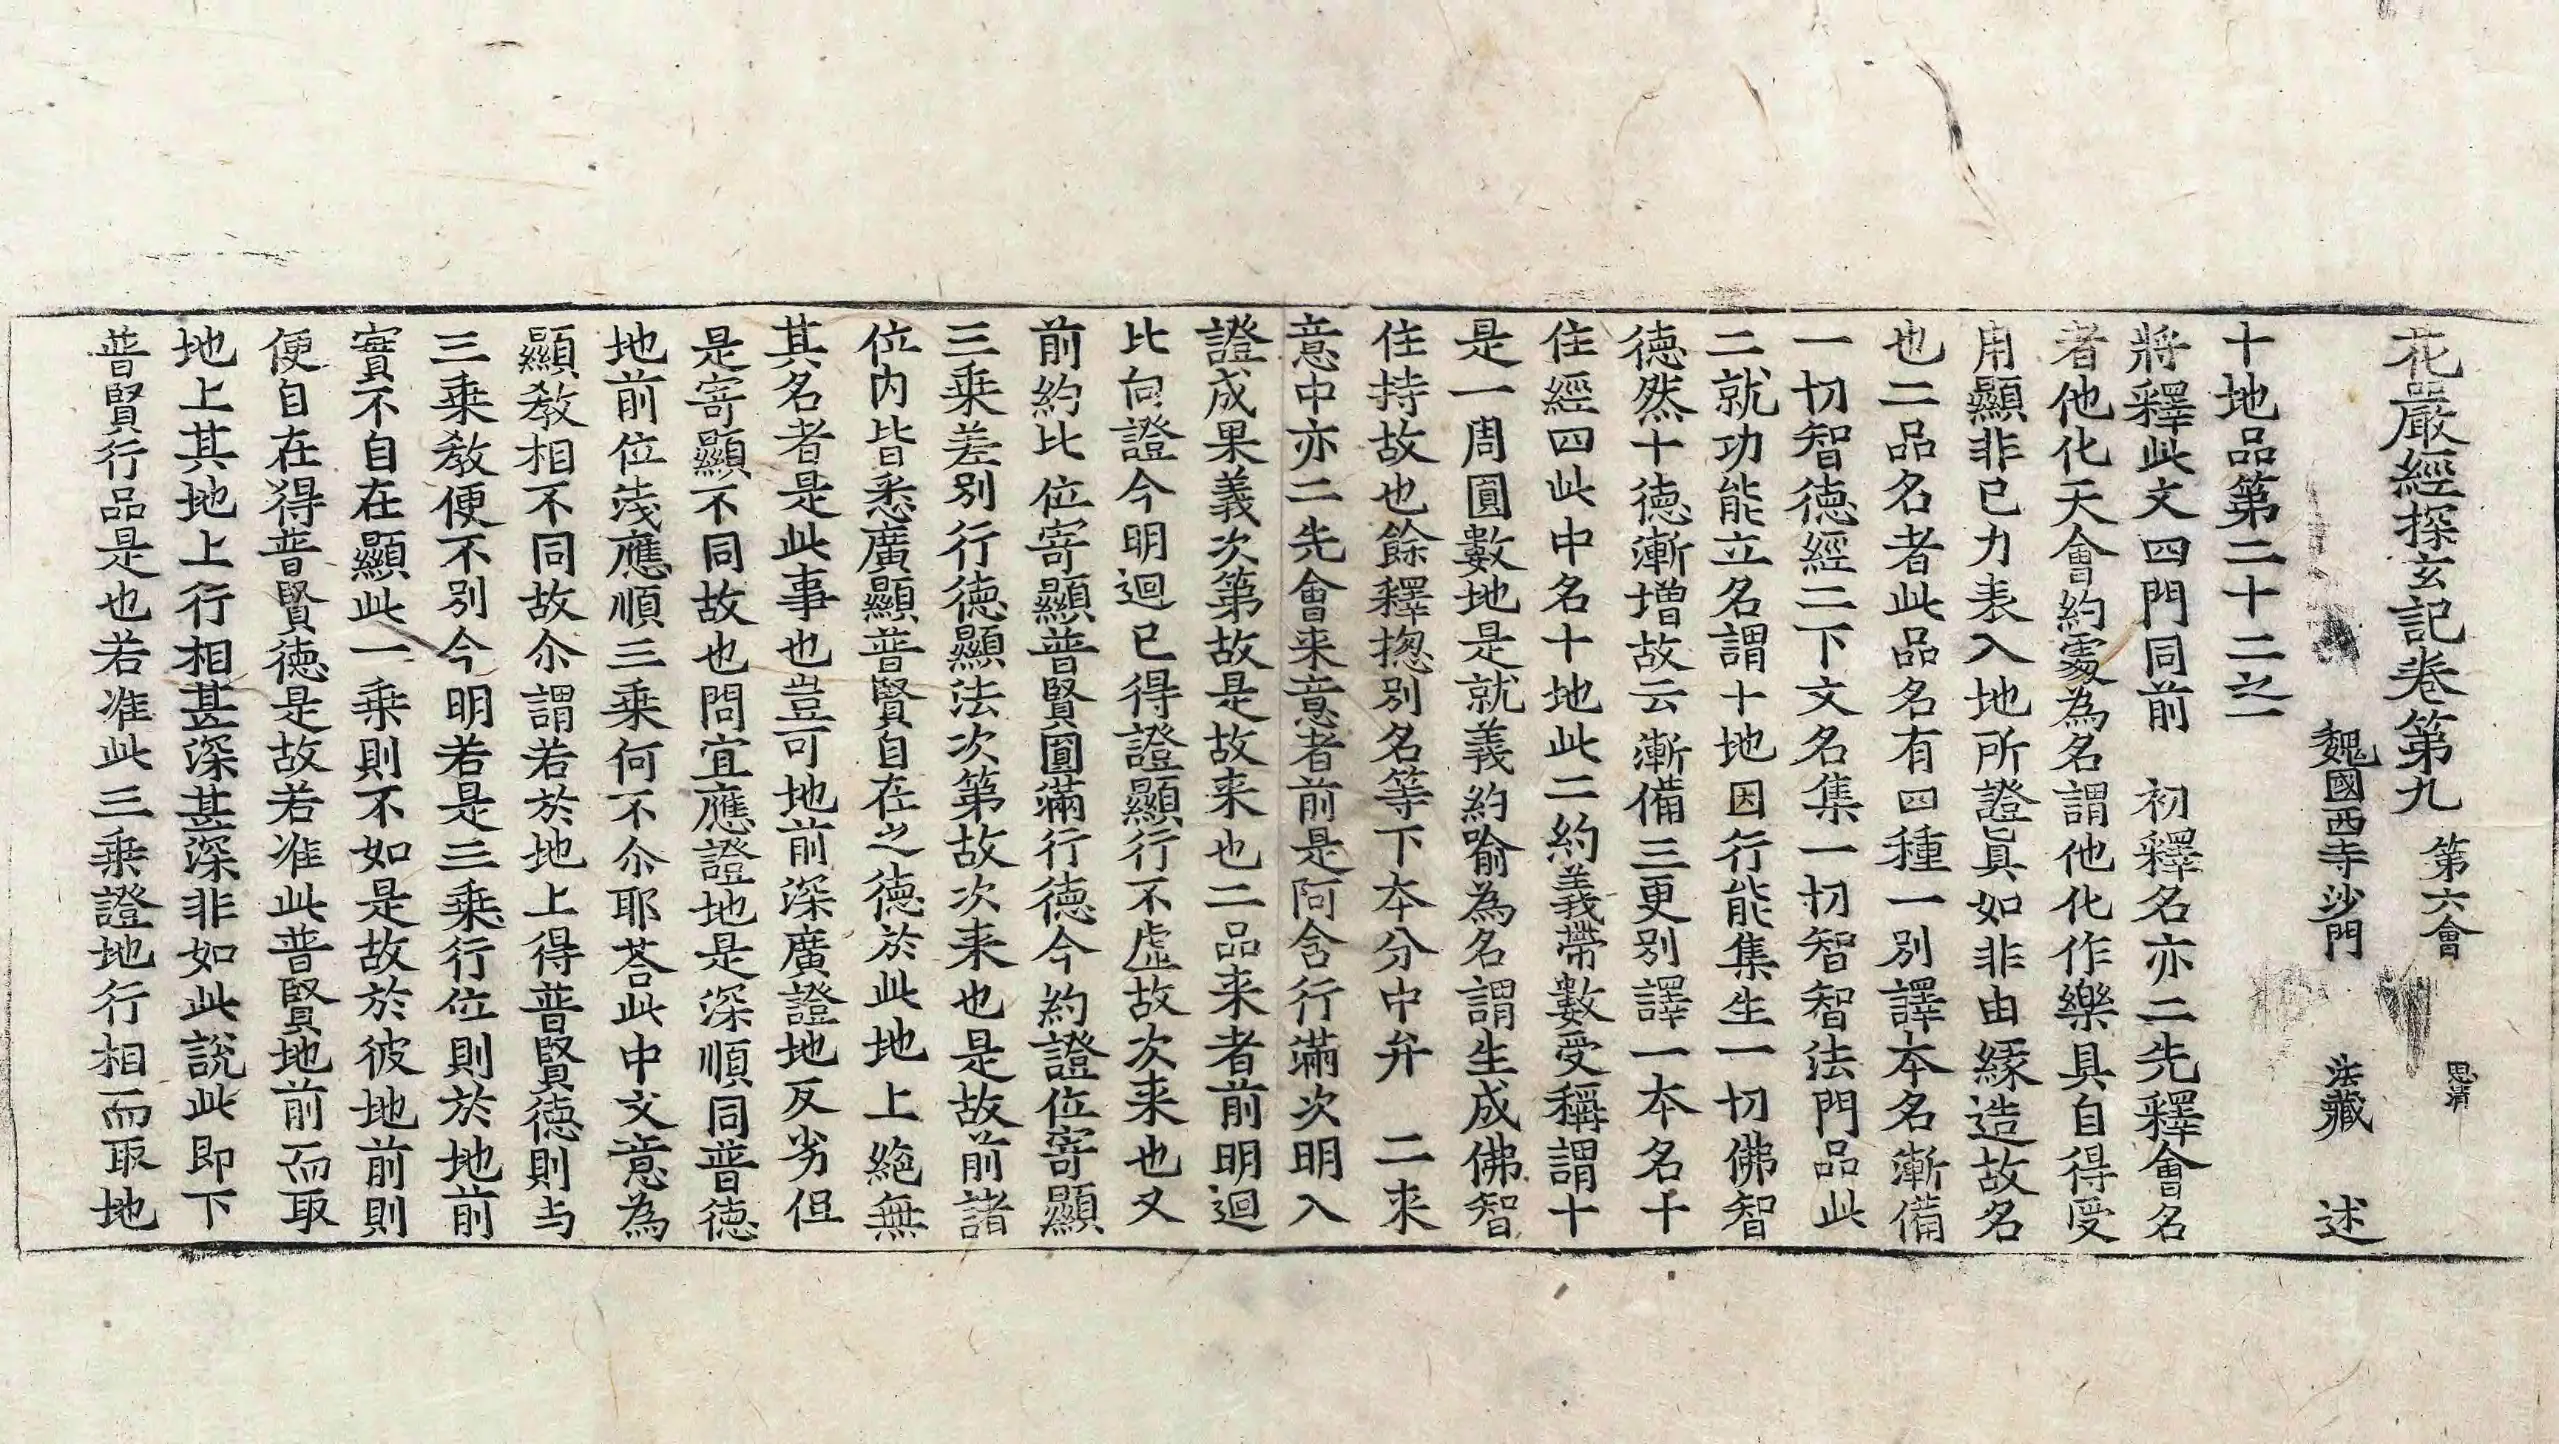 花嚴經探玄記卷第九 第六會 思清
魏國西寺沙門 法藏 述
十地品第二十二之一
將釋此文四門同前 初釋名亦二先釋會名
者他化天會約處為名謂他化作樂具自得受
用顯非已力表入地所證真如非由緣造故名
也二品名者此品名有四種一別譯本名漸備
一切智德經二下文名集一切智智法門品此
二就功能立名謂十地因行能集生一切佛智
德然十德漸增故云漸備三更別譯一本名十
住經四此中名十地此二約義帶數受稱謂十
是一周圓數地是就義約喻為名謂生成佛智
住持故也餘釋揔別名等下夲分中弁 二来
意中亦二先會来意者前是阿含行滿次明入
證成果義次第故是故来也二品来者前明迴
比向證今明迴已得證顯行不虛故次来也又
前約比位寄顯普賢圓滿行德今約證位寄顯
三乘差別行德顯法次第故次来也是故前諸
位內皆悉廣顯普賢自在之德於此地上絕無
其名者是此事也豈可地前深廣證地反劣但
是寄顯不同故也問宜應證地是深順同普德
地前位淺應順三乘何不尒耶荅此中文意為
顯教相不同故尒謂若於地上得普賢德則与
三乘教便不別今明若是三乘行位則於地前
實不自在顯此一乘則不如是故於彼地前則
便自在得普賢德是故若准此普賢地前而取
地上其地上行相甚深甚深非如此說此即下
普賢行品是也若准此三乘證地行相而取地